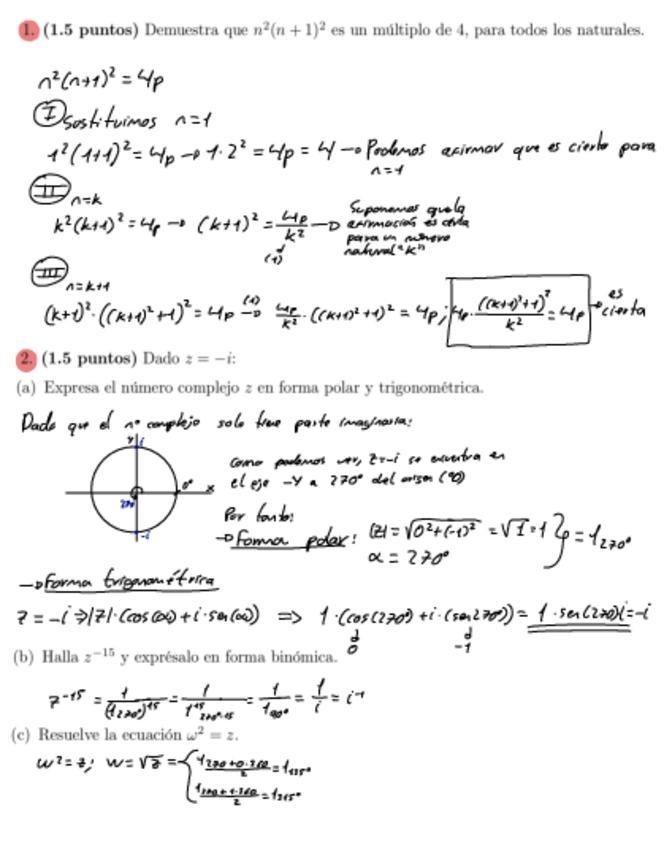 1. (1.5 puntos) Demuestra que n²(n + 1)² es un múltiplo de 4, para todos los naturales.
n²(n+1)² = 4p
I Sustituimos n=1
1²(1+1)² = 4p → 1·2² = 4p = 4 → Podemos afirmar que es cierto para
n=1
II n=k
k²(k+1)² = 4p → (k+1)² = 4p/k² → Suponemos que la
afirmación es cierta
para un número
natural "k"
(1)
III n=k+1
(k+1)²·((k+1)²+1)² = 4p (1)→ 4p/k² · ((k+1)²+1)² = 4p; 4p · ((k+1)²+1)²/k² = 4p → es
cierta
2. (1.5 puntos) Dado z = −i:
(a) Expresa el número complejo z en forma polar y trigonométrica.
Dado que el nº complejo solo tiene parte imaginaria:
y i
0° x
270
-i
Como podemos ver, z=-i se encuentra en
el eje -Y a 270° del origen (0°)
Por tanto:
→ Forma polar: |z| = √0²+(-1)² = √1 = 1 } = 1₂₇₀°
α = 270°
→ Forma trigonométrica
z = -i ⇒ |z|·(cos(α) + i·sen(α)) ⇒ 1·(cos(270°) + i·(sen270°)) = 1·sen(270)i = -i
0 -1
(b) Halla z⁻¹⁵ y exprésalo en forma binómica.
z⁻¹⁵ = 1/(1₂₇₀°)¹⁵ = 1/1¹⁵₂₇₀°·₁₅ = 1/1₉₀° = 1/i = i⁻¹
(c) Resuelve la ecuación ω² = z.
w² = z; w = √z = { 1 270+0·360/2 = 1₁₃₅°
1 270+1·360/2 = 1₃₁₅°